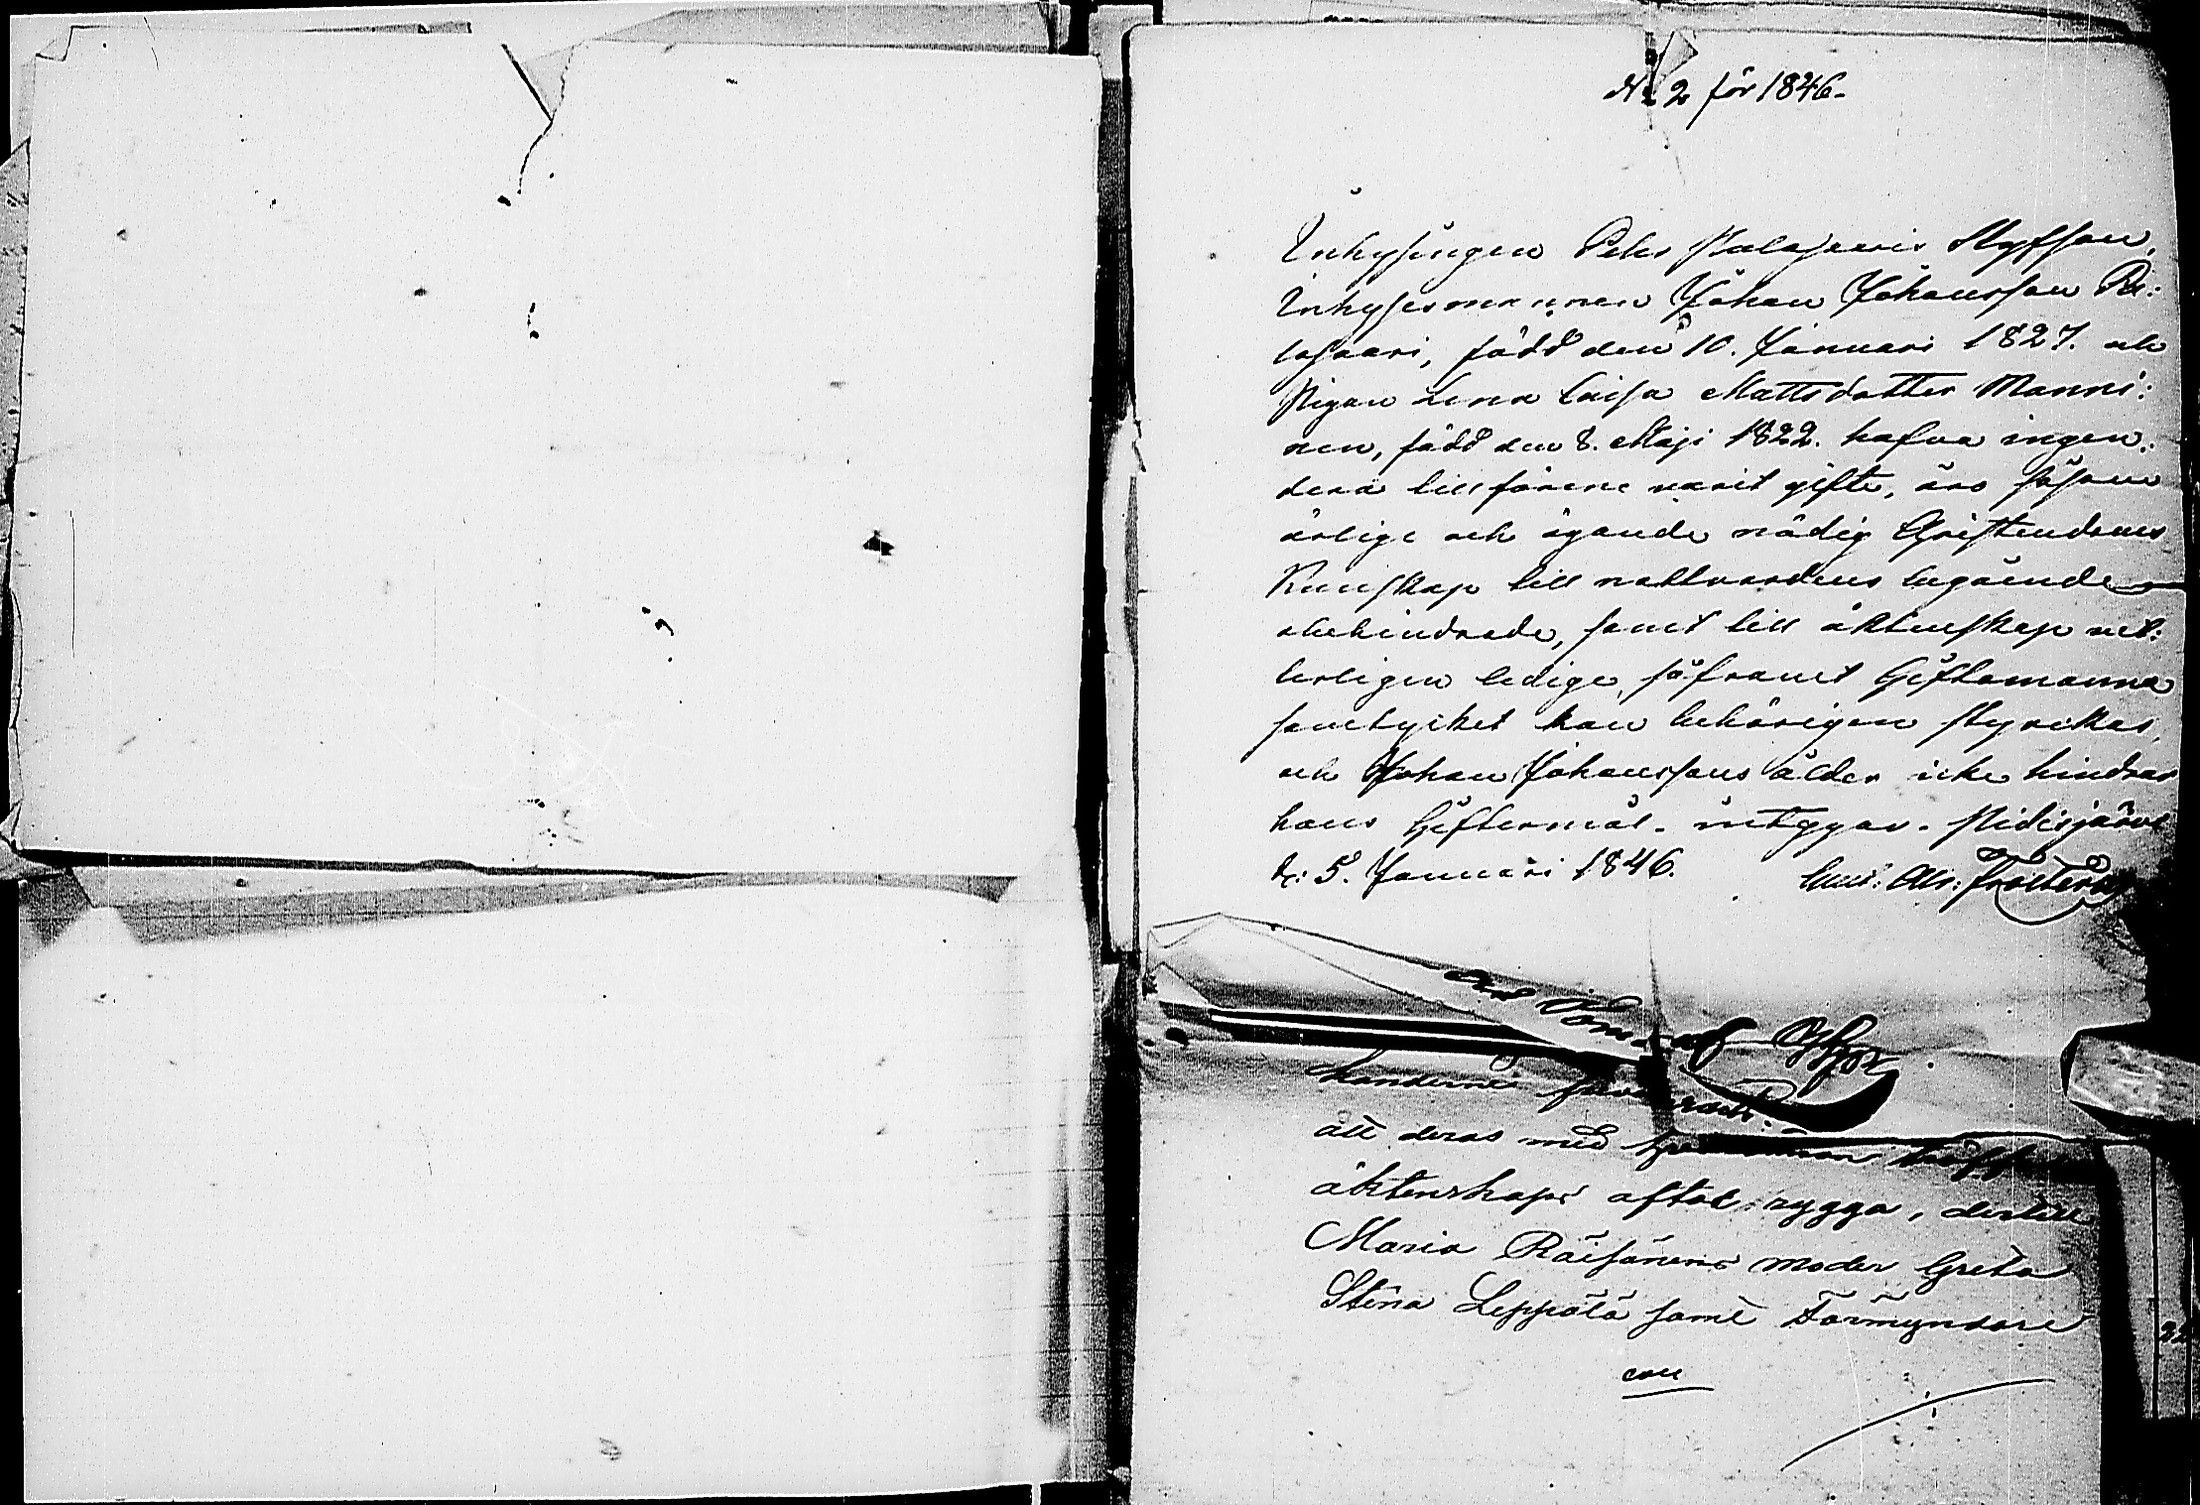 N: 2 för 1846.
Inhysingen Pehr Palosaaris Styfson,
Inhysesmannen Johan Johansson Pa:
losaari, född den 10. Januari 1827. och
Pigan Lena Caisa Mattsdotter Manni:
nen, född den 8. Maji 1822. hafva ingen:
dera tillförene varit gifte, äro såsom
ärlige och ägande nödig Christendoms
Kunskap till nattvardens begående
obehindrade, samt till äktenskap vet:
terligen ledige, såframt Giftomanna
samtycket kan behörigen styrkas,
och Johan Johanssons ålder icke hindrar
hans Giftermål. intyggar. Pidisjärvi
d: 5. Januari 1846.
att deras med
äktenskaps aftal rygga, dertill
Maria Räisänens moder Greta
Stina Leppälä samt Förmyndare